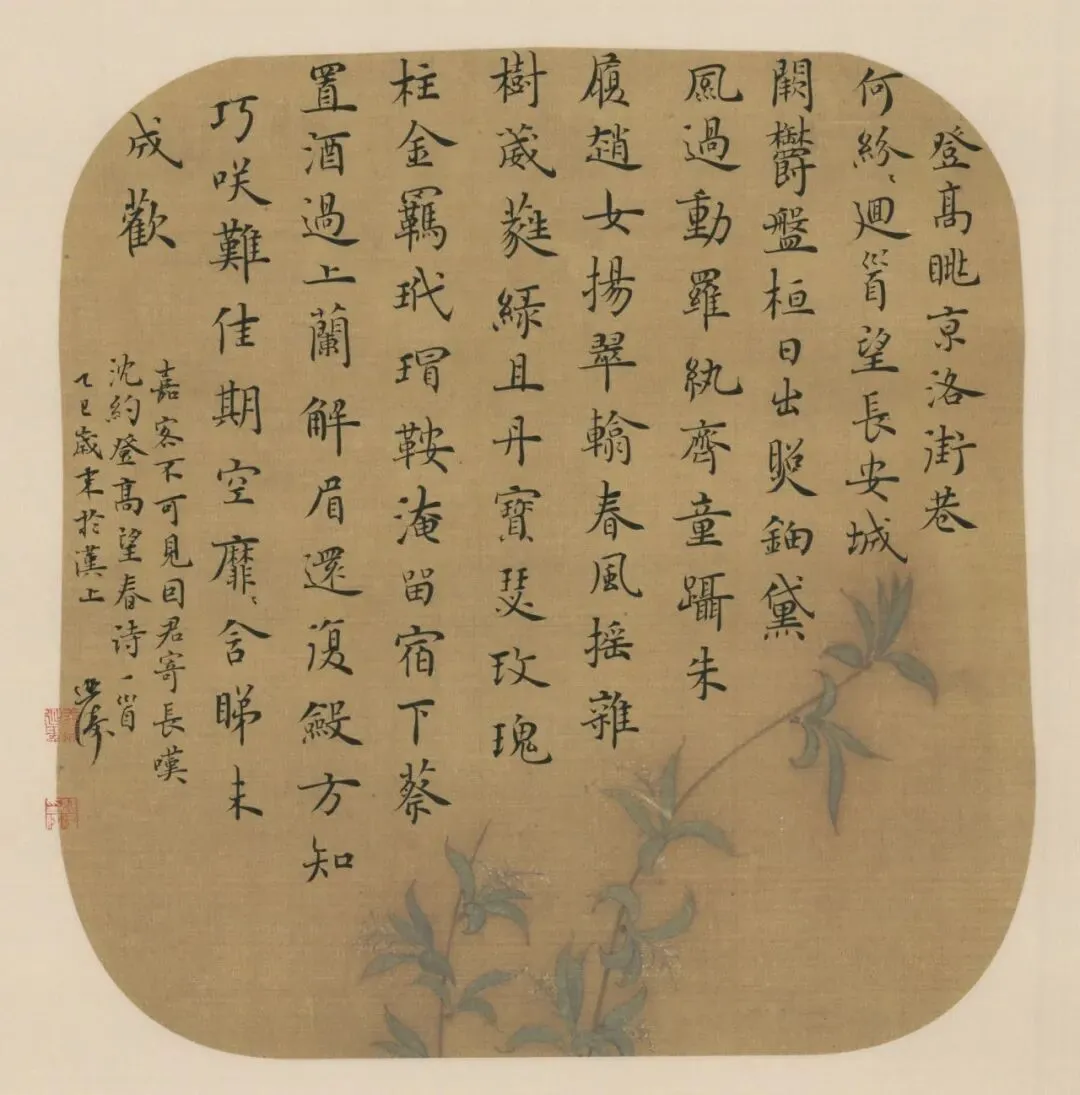 登高眺京洛街巷
何紛〻迴首望長安城
闕欝盤桓日出照鈿黛
風過動羅紈齊童躡朱
履趙女揚翠翰春風搖雜
樹葳蕤綠且丹寶瑟玫瑰
柱金羈玳瑁鞍淹留宿下蔡
置酒過上蘭解眉還復斂方知
巧咲難佳期空靡〻含睇未
成歡
嘉客不可見因君寄長嘆
沈約登高望春诗一首
乙巳歲末於漢上